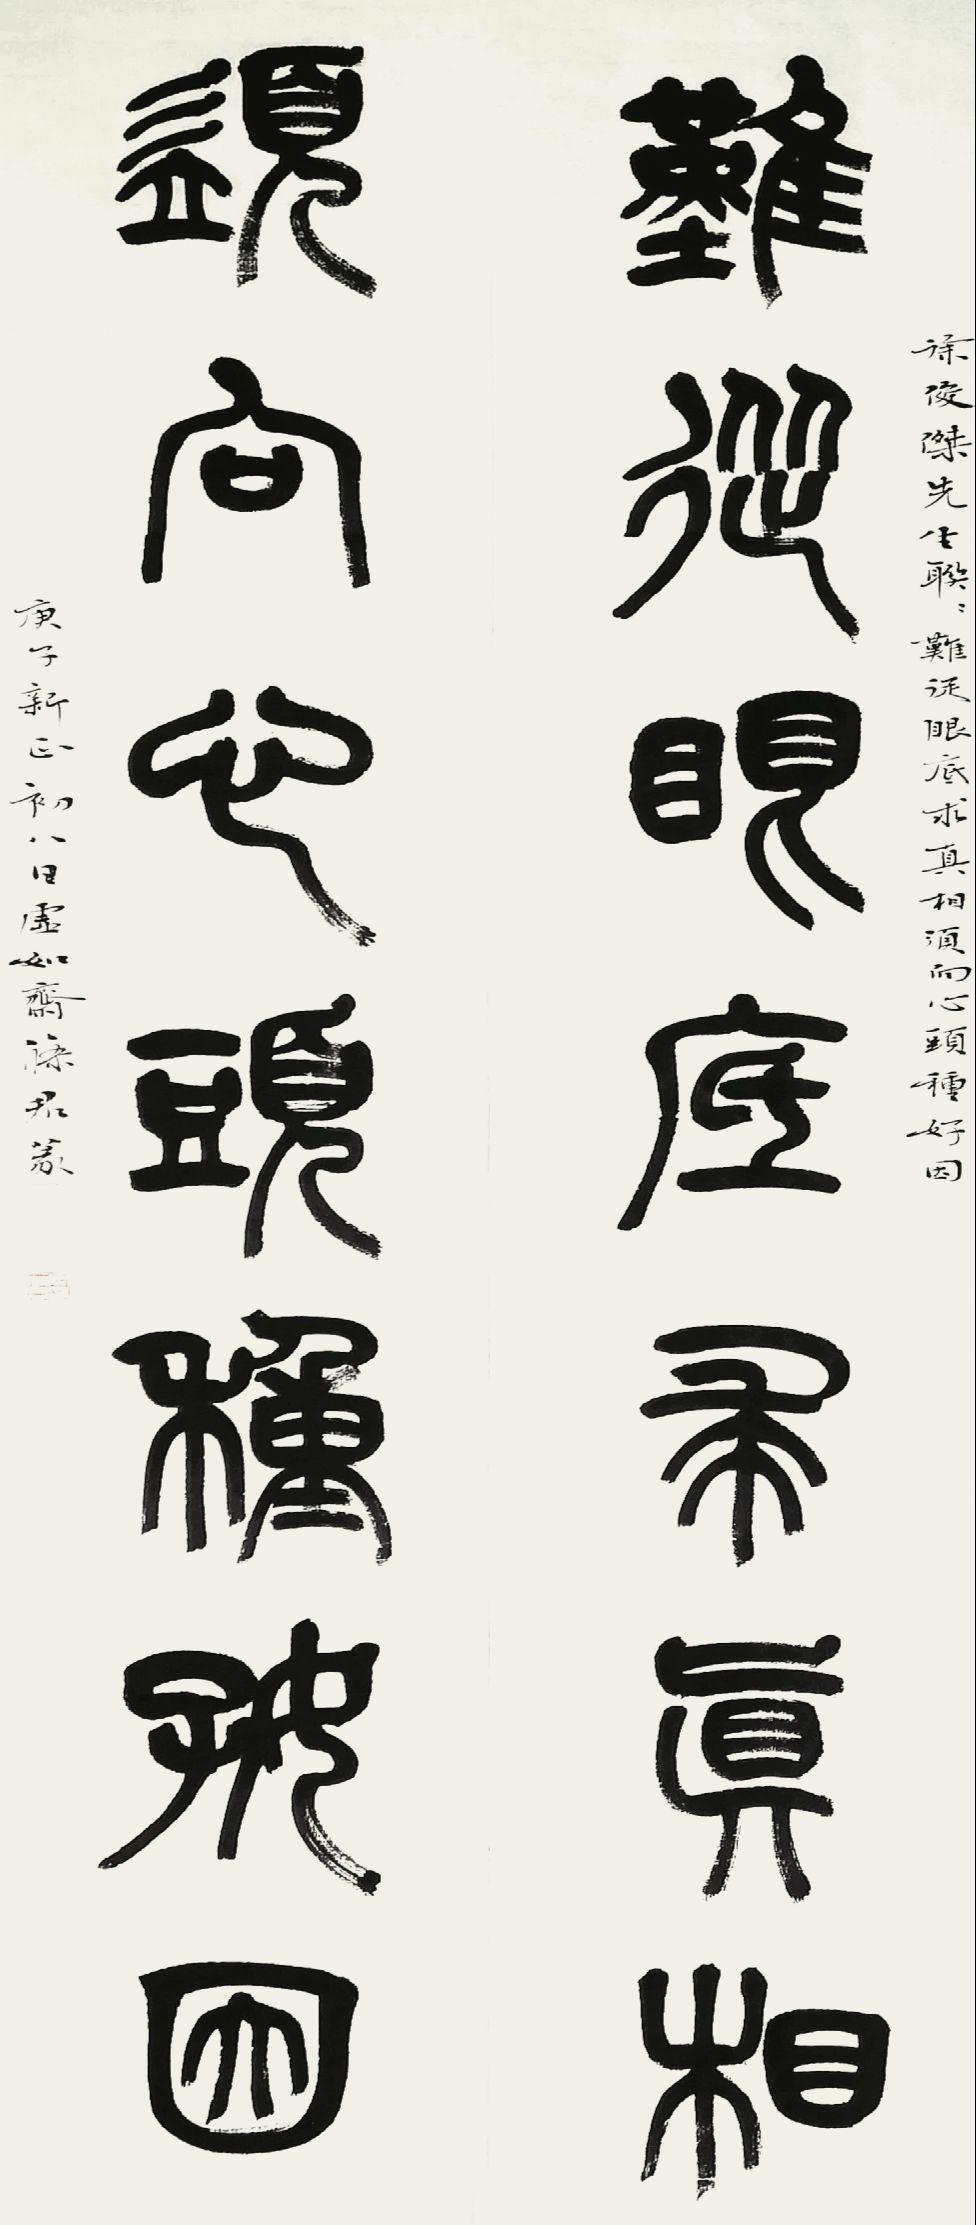 徐俊傑先生聯：難從眼底求真相須向心頭種好因
難從眼底求真相
須向心頭種好因
庚子新正初八日虛如齋君篆